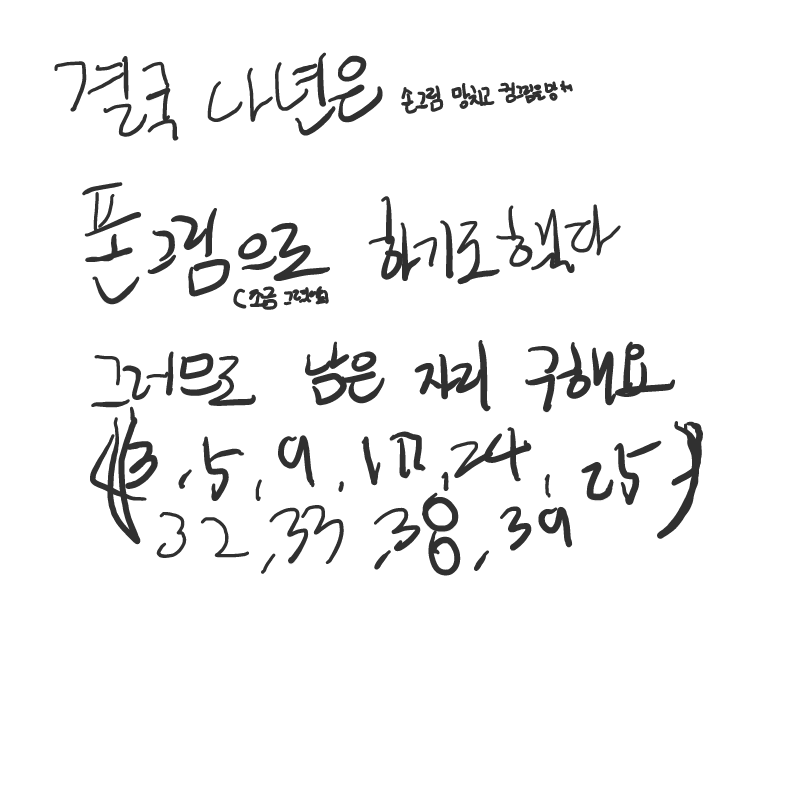 결국 나년은 손그림 망치고 컴그림은망해
폰그림으로 하기도했다
(조금 그렸어요)
그러므로 남은 자리 구해요
(13, 5, 9, 17, 24, 25)
32, 33, 38, 39